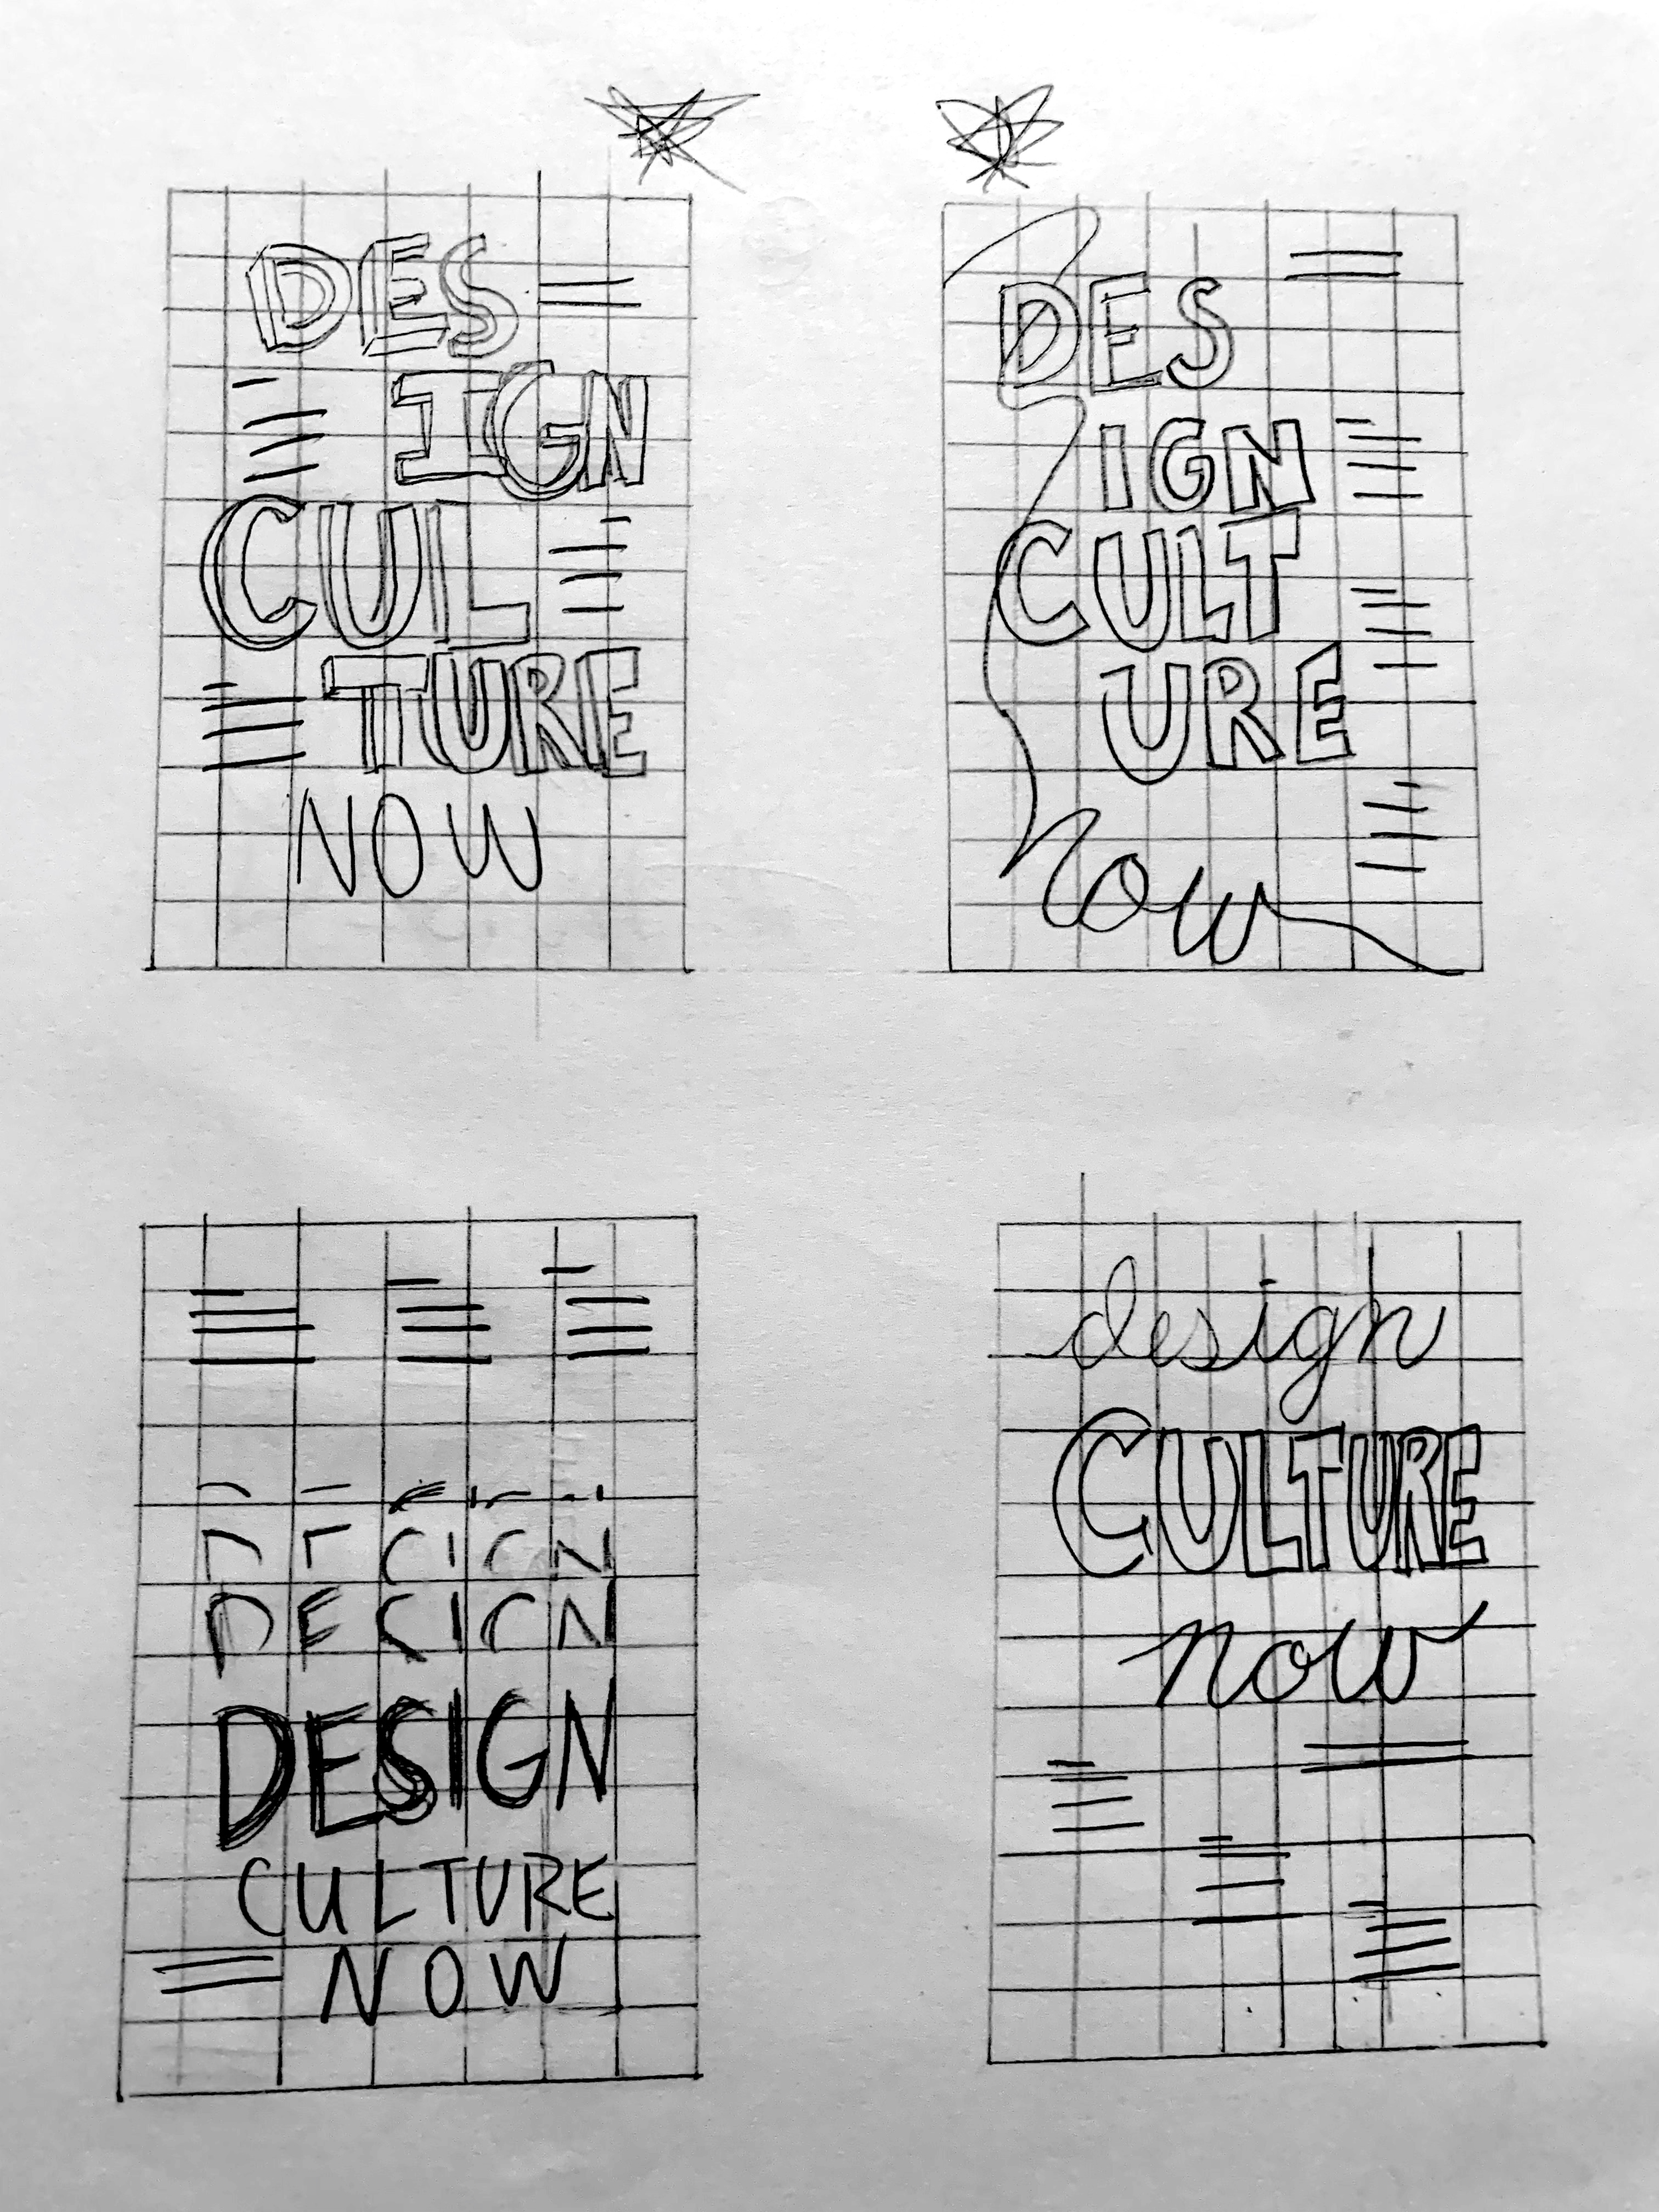 DES
IGN
CUL
TURE
NOW
DES
IGN
CULT
URE
now
DESIGN
CULTURE
NOW
design
CULTURE
now